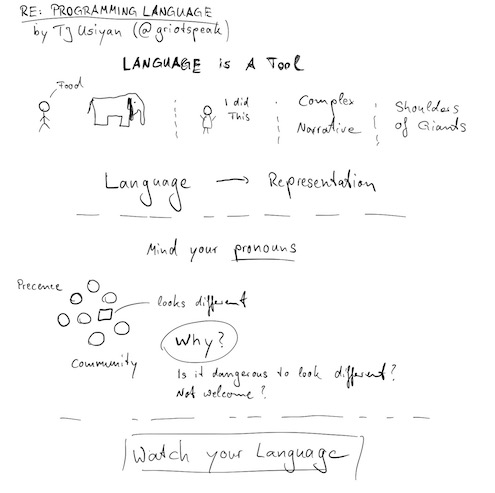 RE: PROGRAMMING LANGUAGE
by TJ Usiyan (@griotspeak)
LANGUAGE is A Tool
Food
I did
This
Complex
Narrative
Shoulders
of Giants
Language → Representation
Mind your pronouns
Precence
looks different
Why?
Community
Is it dangerous to look different?
Not welcome?
Watch your Language